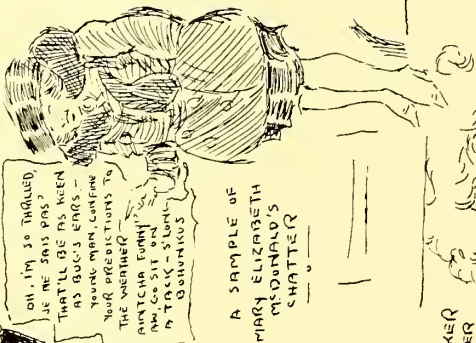 OH, I'M SO THRILLED,
JE NE SAIS PAS'
THAT'LL BE AS KEEN
AS BUG'S EARS. —
YOUNG MAN, CONFINE
YOUR PREDICTIONS TO
THE WEATHER —
AINTCHA FUNNY'
AW, GO SIT ON
A TACK – S'LONG
BOHUNKUS
A SAMPLE OF
MARY ELIZABETH
McDONALD'S
CHATTER
KER
ER